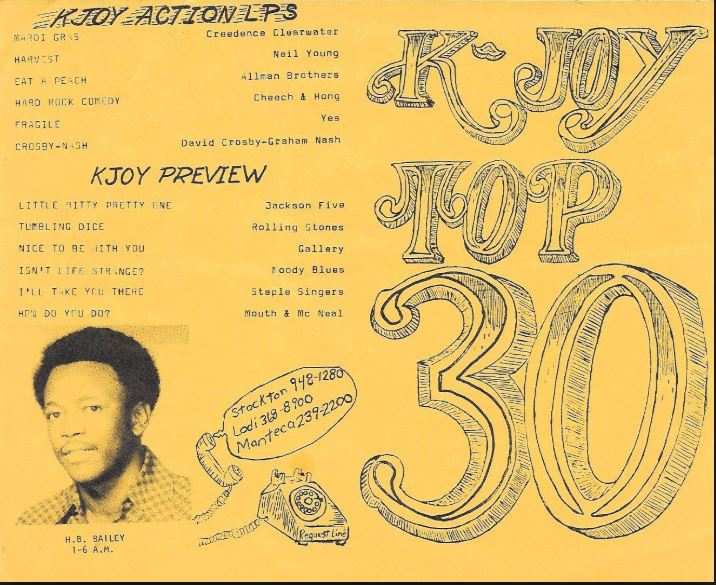 KJOY ACTION LPS
MARDI GRAS Creedence Clearwater
HARVEST Neil Young
EAT A PEACH Allman Brothers
HARD ROCK COMEDY Cheech & Hong
FRAGILE Yes
CROSBY-NASH David Crosby-Graham Nash
KJOY PREVIEW
LITTLE BITTY PRETTY ONE Jackson Five
TUMBLING DICE Rolling Stones
NICE TO BE WITH YOU Gallery
ISN'T LIFE STRANGE? Moody Blues
I'LL TAKE YOU THERE Staple Singers
HOW DO YOU DO? Mouth & Mc Neal
H.B. BAILEY
1-6 A.M.
Stockton 948-1280
Lodi 368-8900
Manteca 239-2200
Request Line
K-JOY
TOP
30